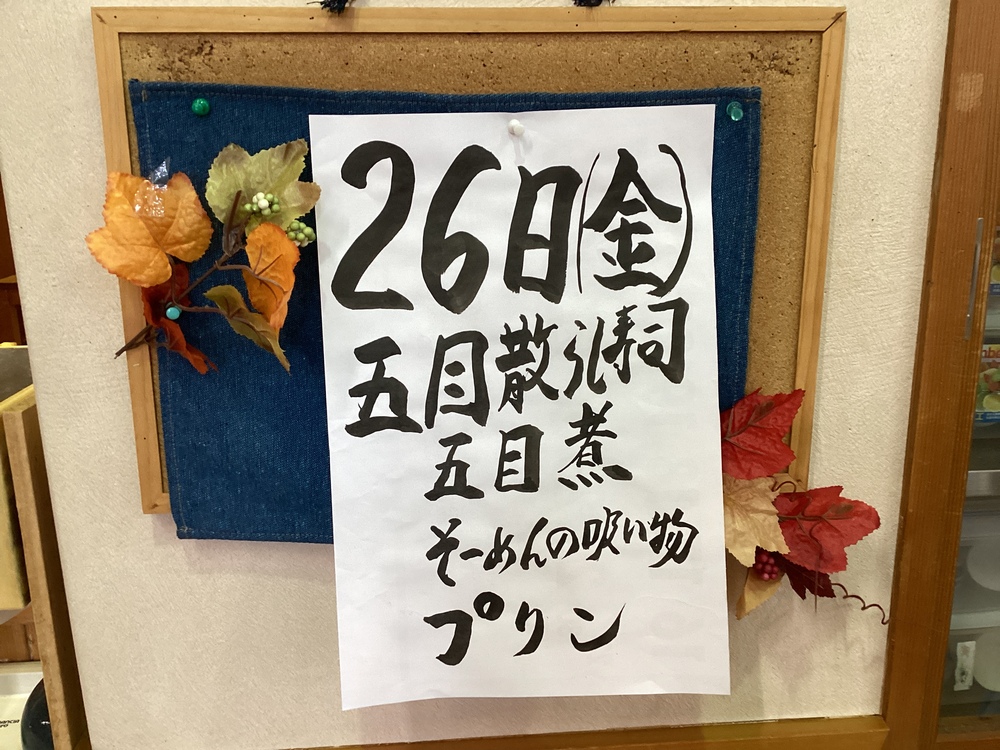 26日(金)
五目散らし寿司
五目煮
そーめんの吸い物
プリン